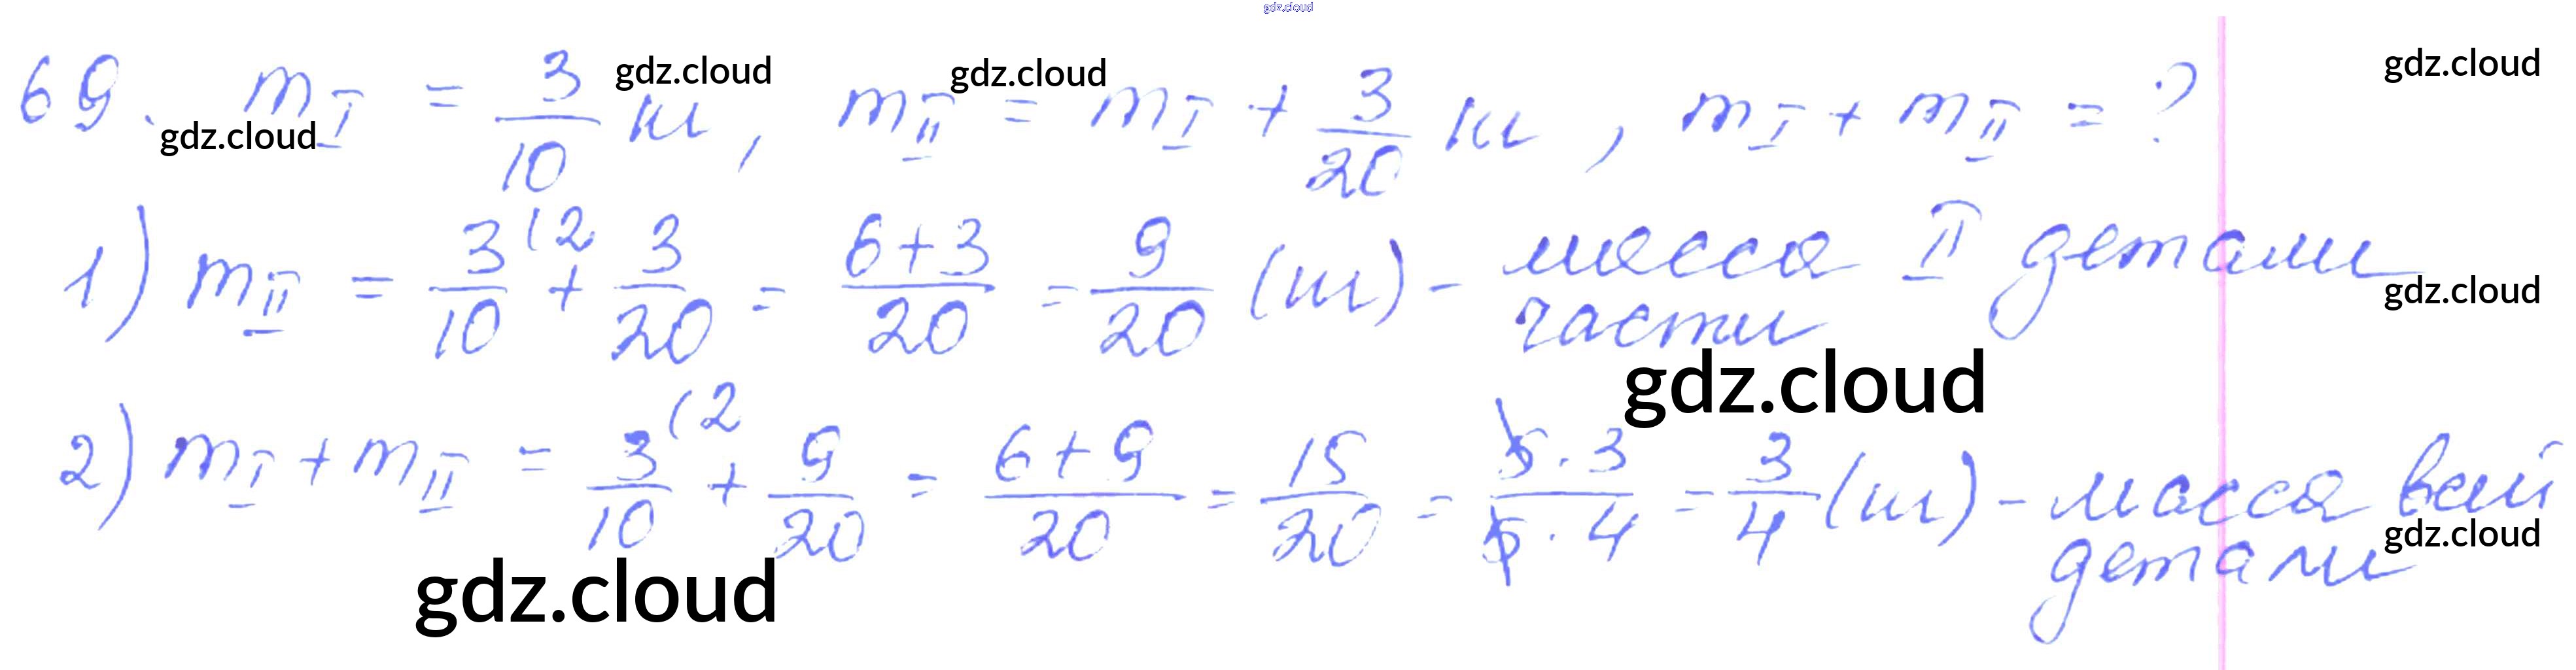 gdz.cloud
69. m_I = 3/10 м, m_II = m_I + 3/20 м, m_I + m_II = ?
gdz.cloud gdz.cloud gdz.cloud
gdz.cloud
1) m_II = 3/10 (2 + 3/20 = (6+3)/20 = 9/20 (м) - масса II детали
части
gdz.cloud
gdz.cloud
2) m_I + m_II = 3/10 (2 + 9/20 = (6+9)/20 = 15/20 = (5·3)/(5·4) = 3/4 (м) - масса всей
детали
gdz.cloud
gdz.cloud